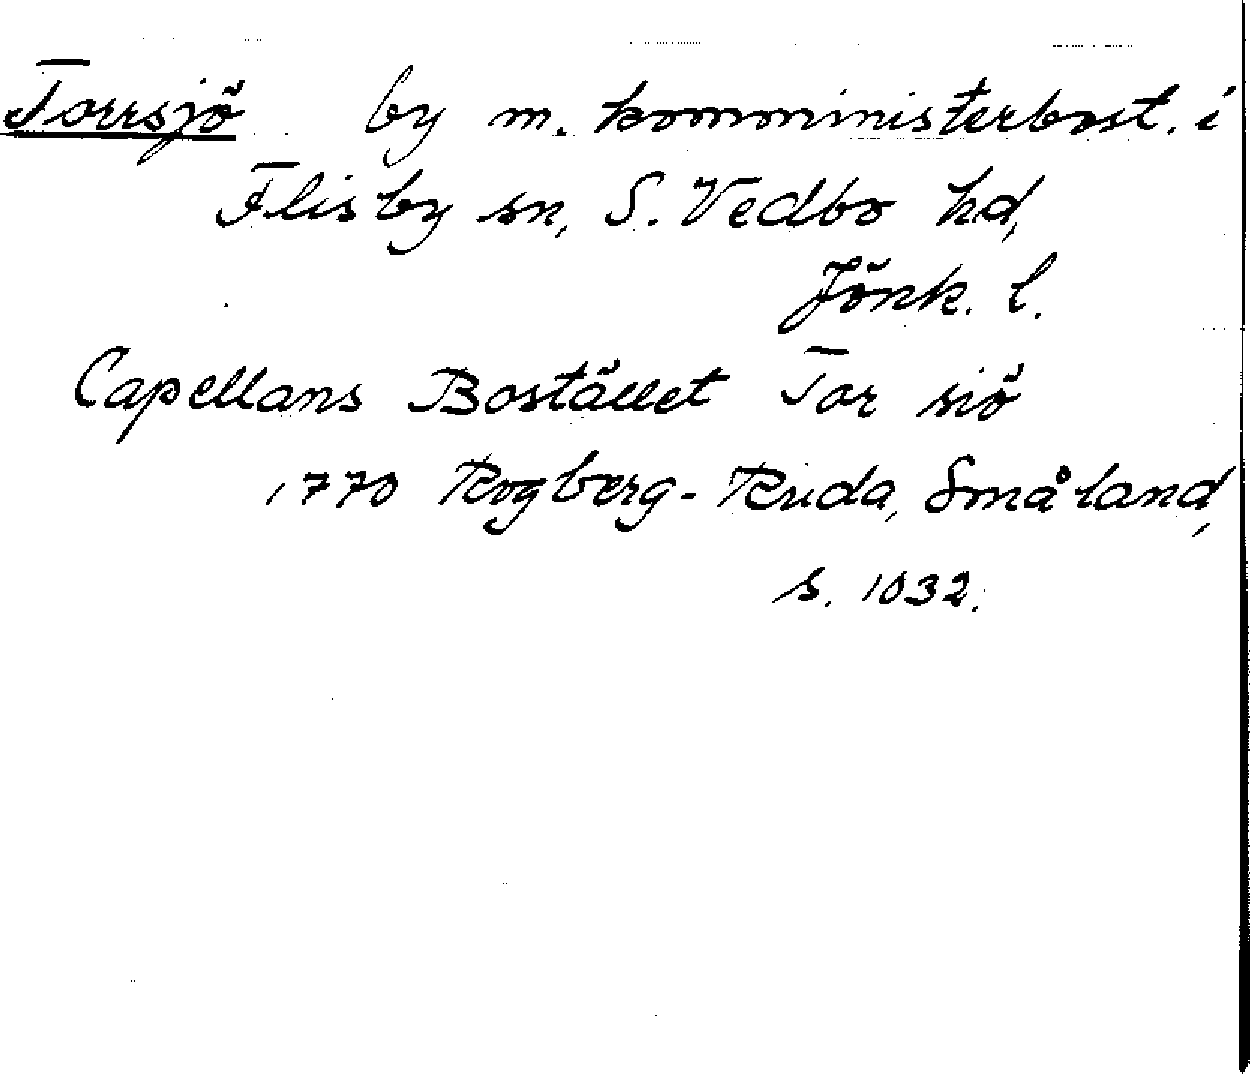 Torrsjö by m. komministerbost. i
Flisby sn, S. Vedbo hd,
Jönk. l.
Capellans Bostället Tor siö
1770 Rogberg-Ruda, Småland,
s. 1032.